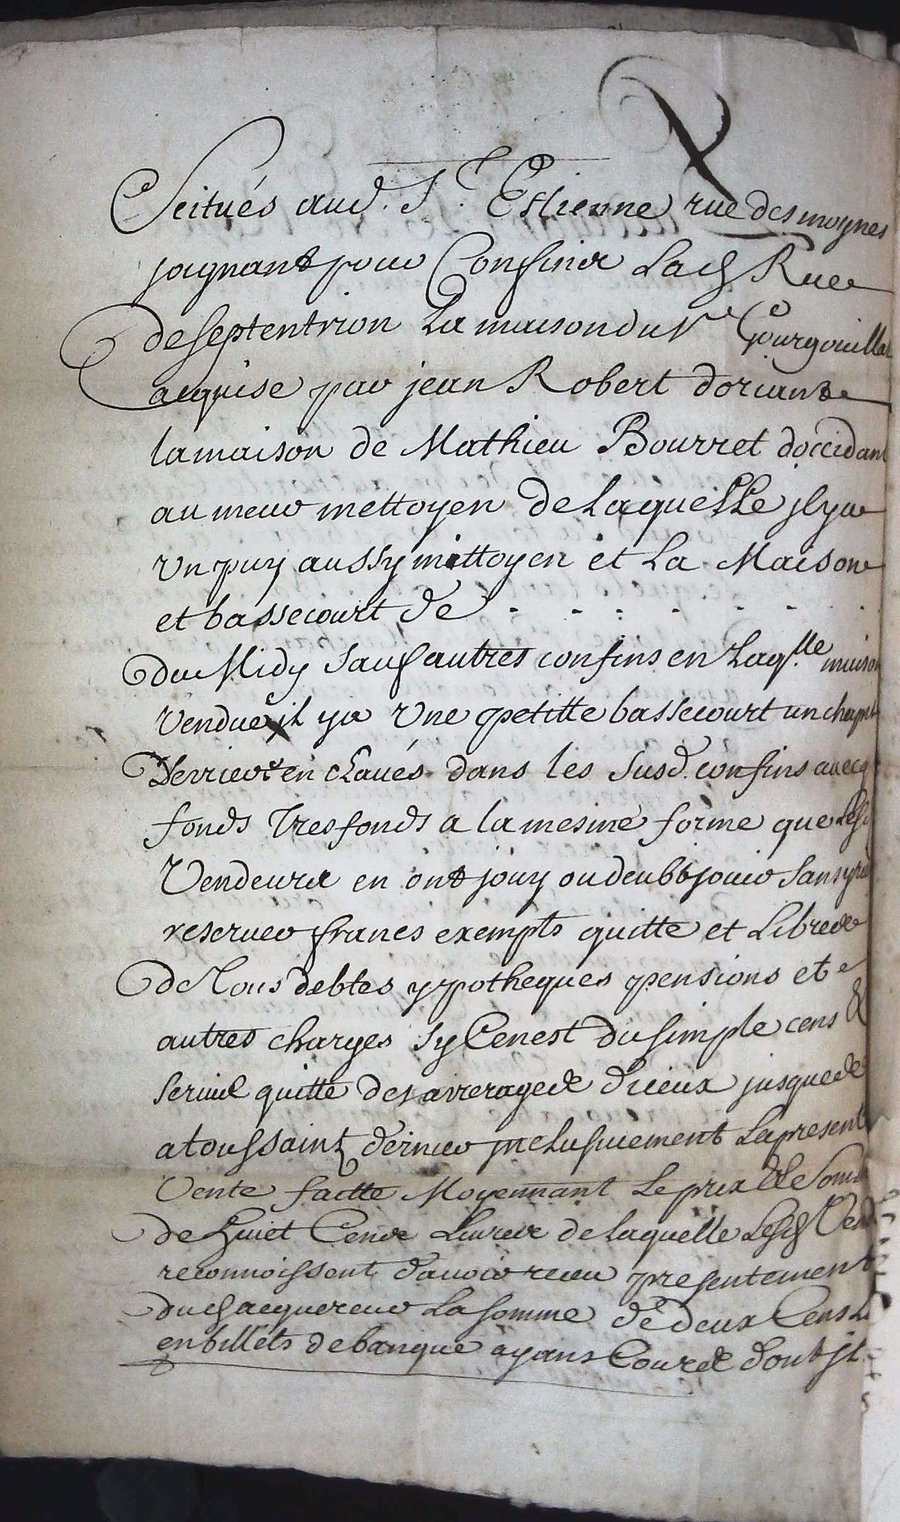 Scitués aud. St. Estienne rue des moynes
joignant pour Confins Lad Rue
de septentrion La maison du Sr Gourgouillat
acquise par jean Robert doriant
la maison de Mathieu Bourret doccidant
au meur mettoyen de Laquelle jl ya
Un puy aussy mittoyen et La Maison
et bassecourt de . . . . . . .
du Midy Sauf autres confins en Laqlle maison
Vendue il ya Une petitte bassecourt
Derriere enclavés dans les Susd. confins avecq
fonds Tresfonds a la mesme forme que Lesd
Vendeurs en ont jouy ou deub jouir Sans y rien
reserver francs exempts quitte et Libre
de Tous debtes ypotheques pensions et
autres charges Sy Cenest du simple cens &
Servis quitte des arrerages diceux jusques
a toussaint dernier jnclusivement La present
Vente faitte Moyennant Le prix & Somme
de huict Cens Livres de laquelle Lesd Vend
reconnoissent davoir receu presentement
dud acquereur La somme de deux Cens L
en billets de banque ayans Cours dont jl